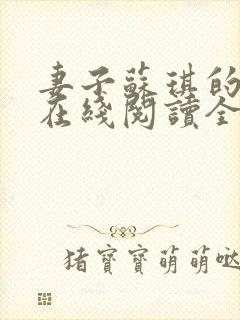 妻子蘇琪的
在綫閱讀全
猪寶寶萌萌噠